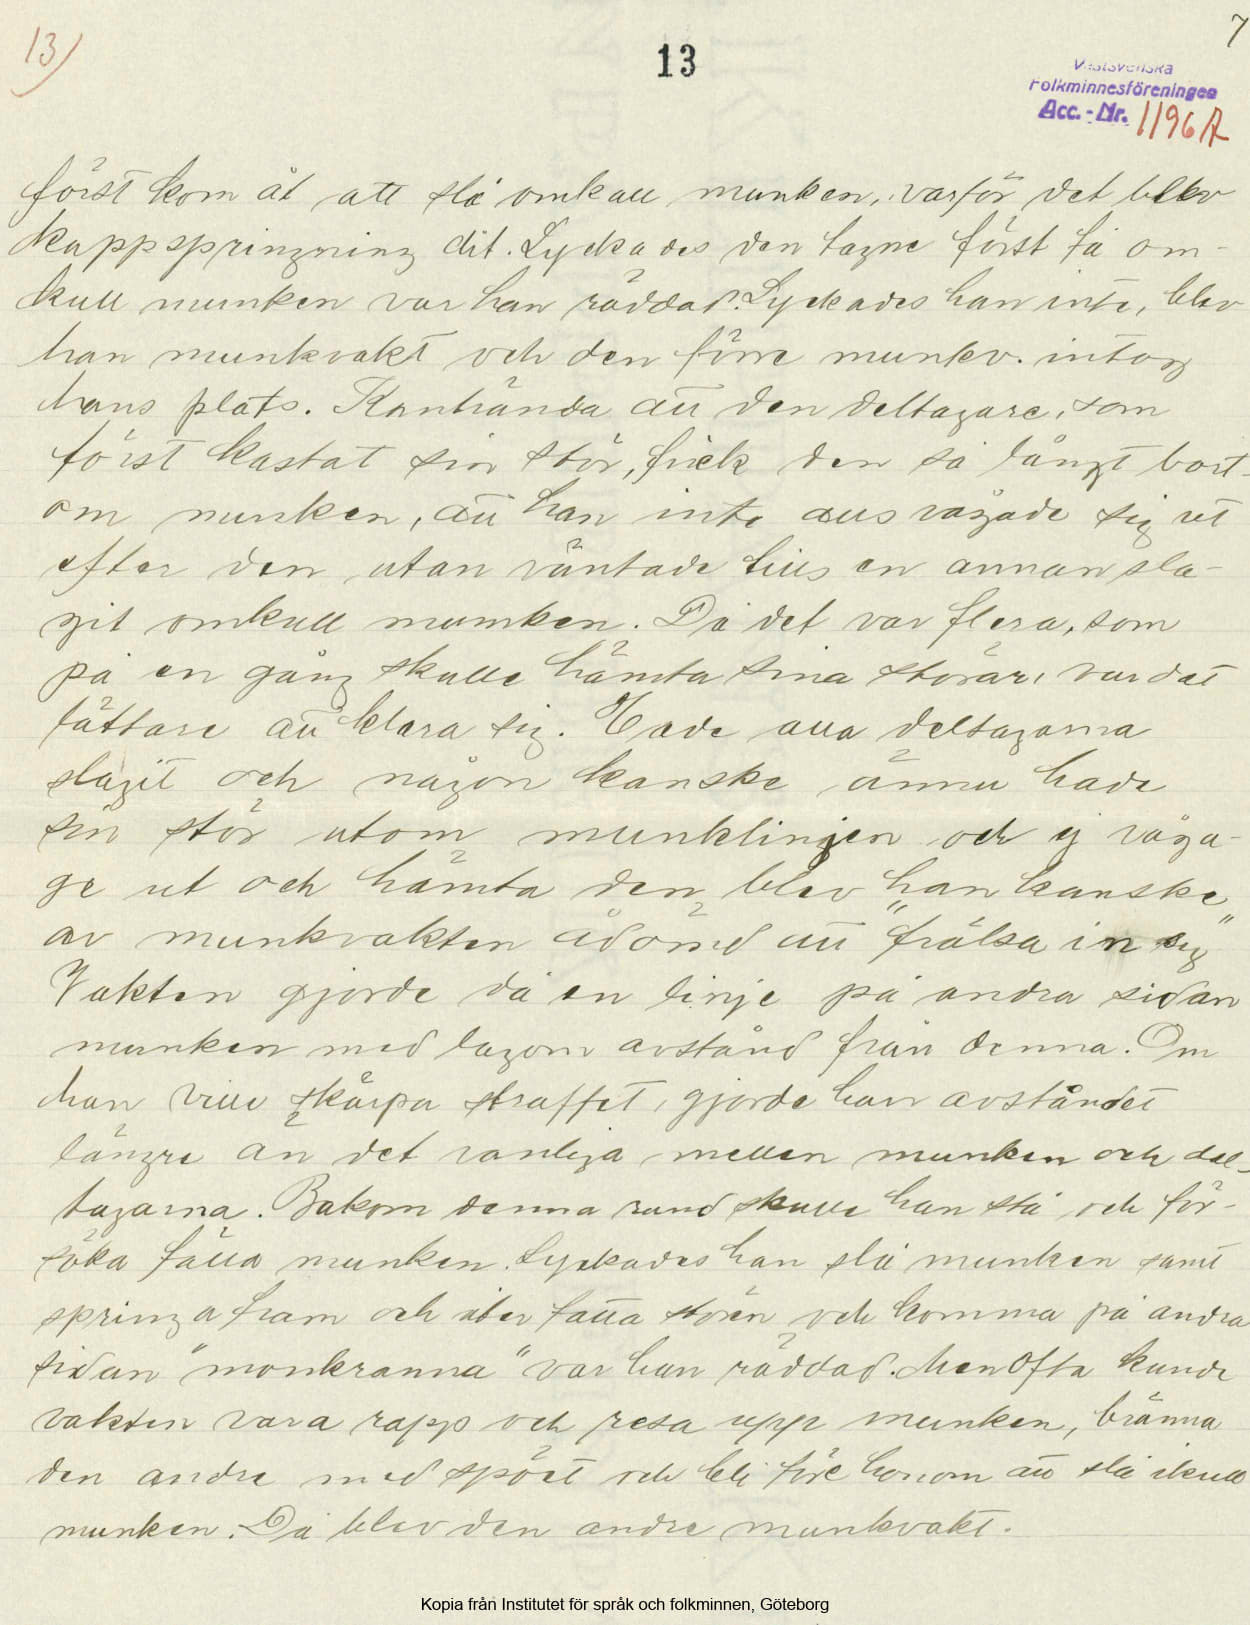 13)
13
7
Västsvenska
Folkminnesföreningen
Acc.-Nr. 1196 A
först kom åt att slå omkull munken, varför det blev
kappspringning dit. Lyckades den tagne först få om-
kull munken var han räddad. Lyckades han inte, blev
han munkvakt och den förre munkv. intog
hans plats. Kanhända att den deltagare, som
först kastat sin stör, fick den så långt bort
om munken, att han inte alls vågade sig ut
efter den utan väntade tills en annan sla-
git omkull munken. Då det var flera, som
på en gång skulle hämta sina störar, var det
lättare att klara sig. Hade alla deltagarna
slagit och någon kanske ännu hade
sin stör utom munklinjen och ej våga-
ge ut och hämta den, blev han kanske
av munkvakten ådömd att "frälsa in sig"
Vakten gjorde då en linje på andra sidan
munken med lagom avstånd från denna. Om
han ville skärpa straffet, gjorde han avståndet
längre än det vanliga mellan munken och del-
tagarna. Bakom denna rand skulle han stå och för-
söka fälla munken. Lyckades han slå munken samt
springa fram och åter fatta stören och komma på andra
sidan "monkranna" var han räddad. Men ofta kunde
vakten vara rapp och resa upp munken, bränna
den andre med spöet och bli före honom att slå ikull
munken. Då blev den andre munkvakt.
Kopia från Institutet för språk och folkminnen, Göteborg